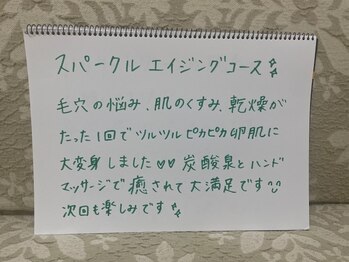 スパークル エイジングコース✨
毛穴の悩み、肌のくすみ、乾燥が
たった1回でツルツルピカピカ卵肌に
大変身しました♡♡ 炭酸泉とハンド
マッサージで癒されて大満足です
次回も楽しみです✨